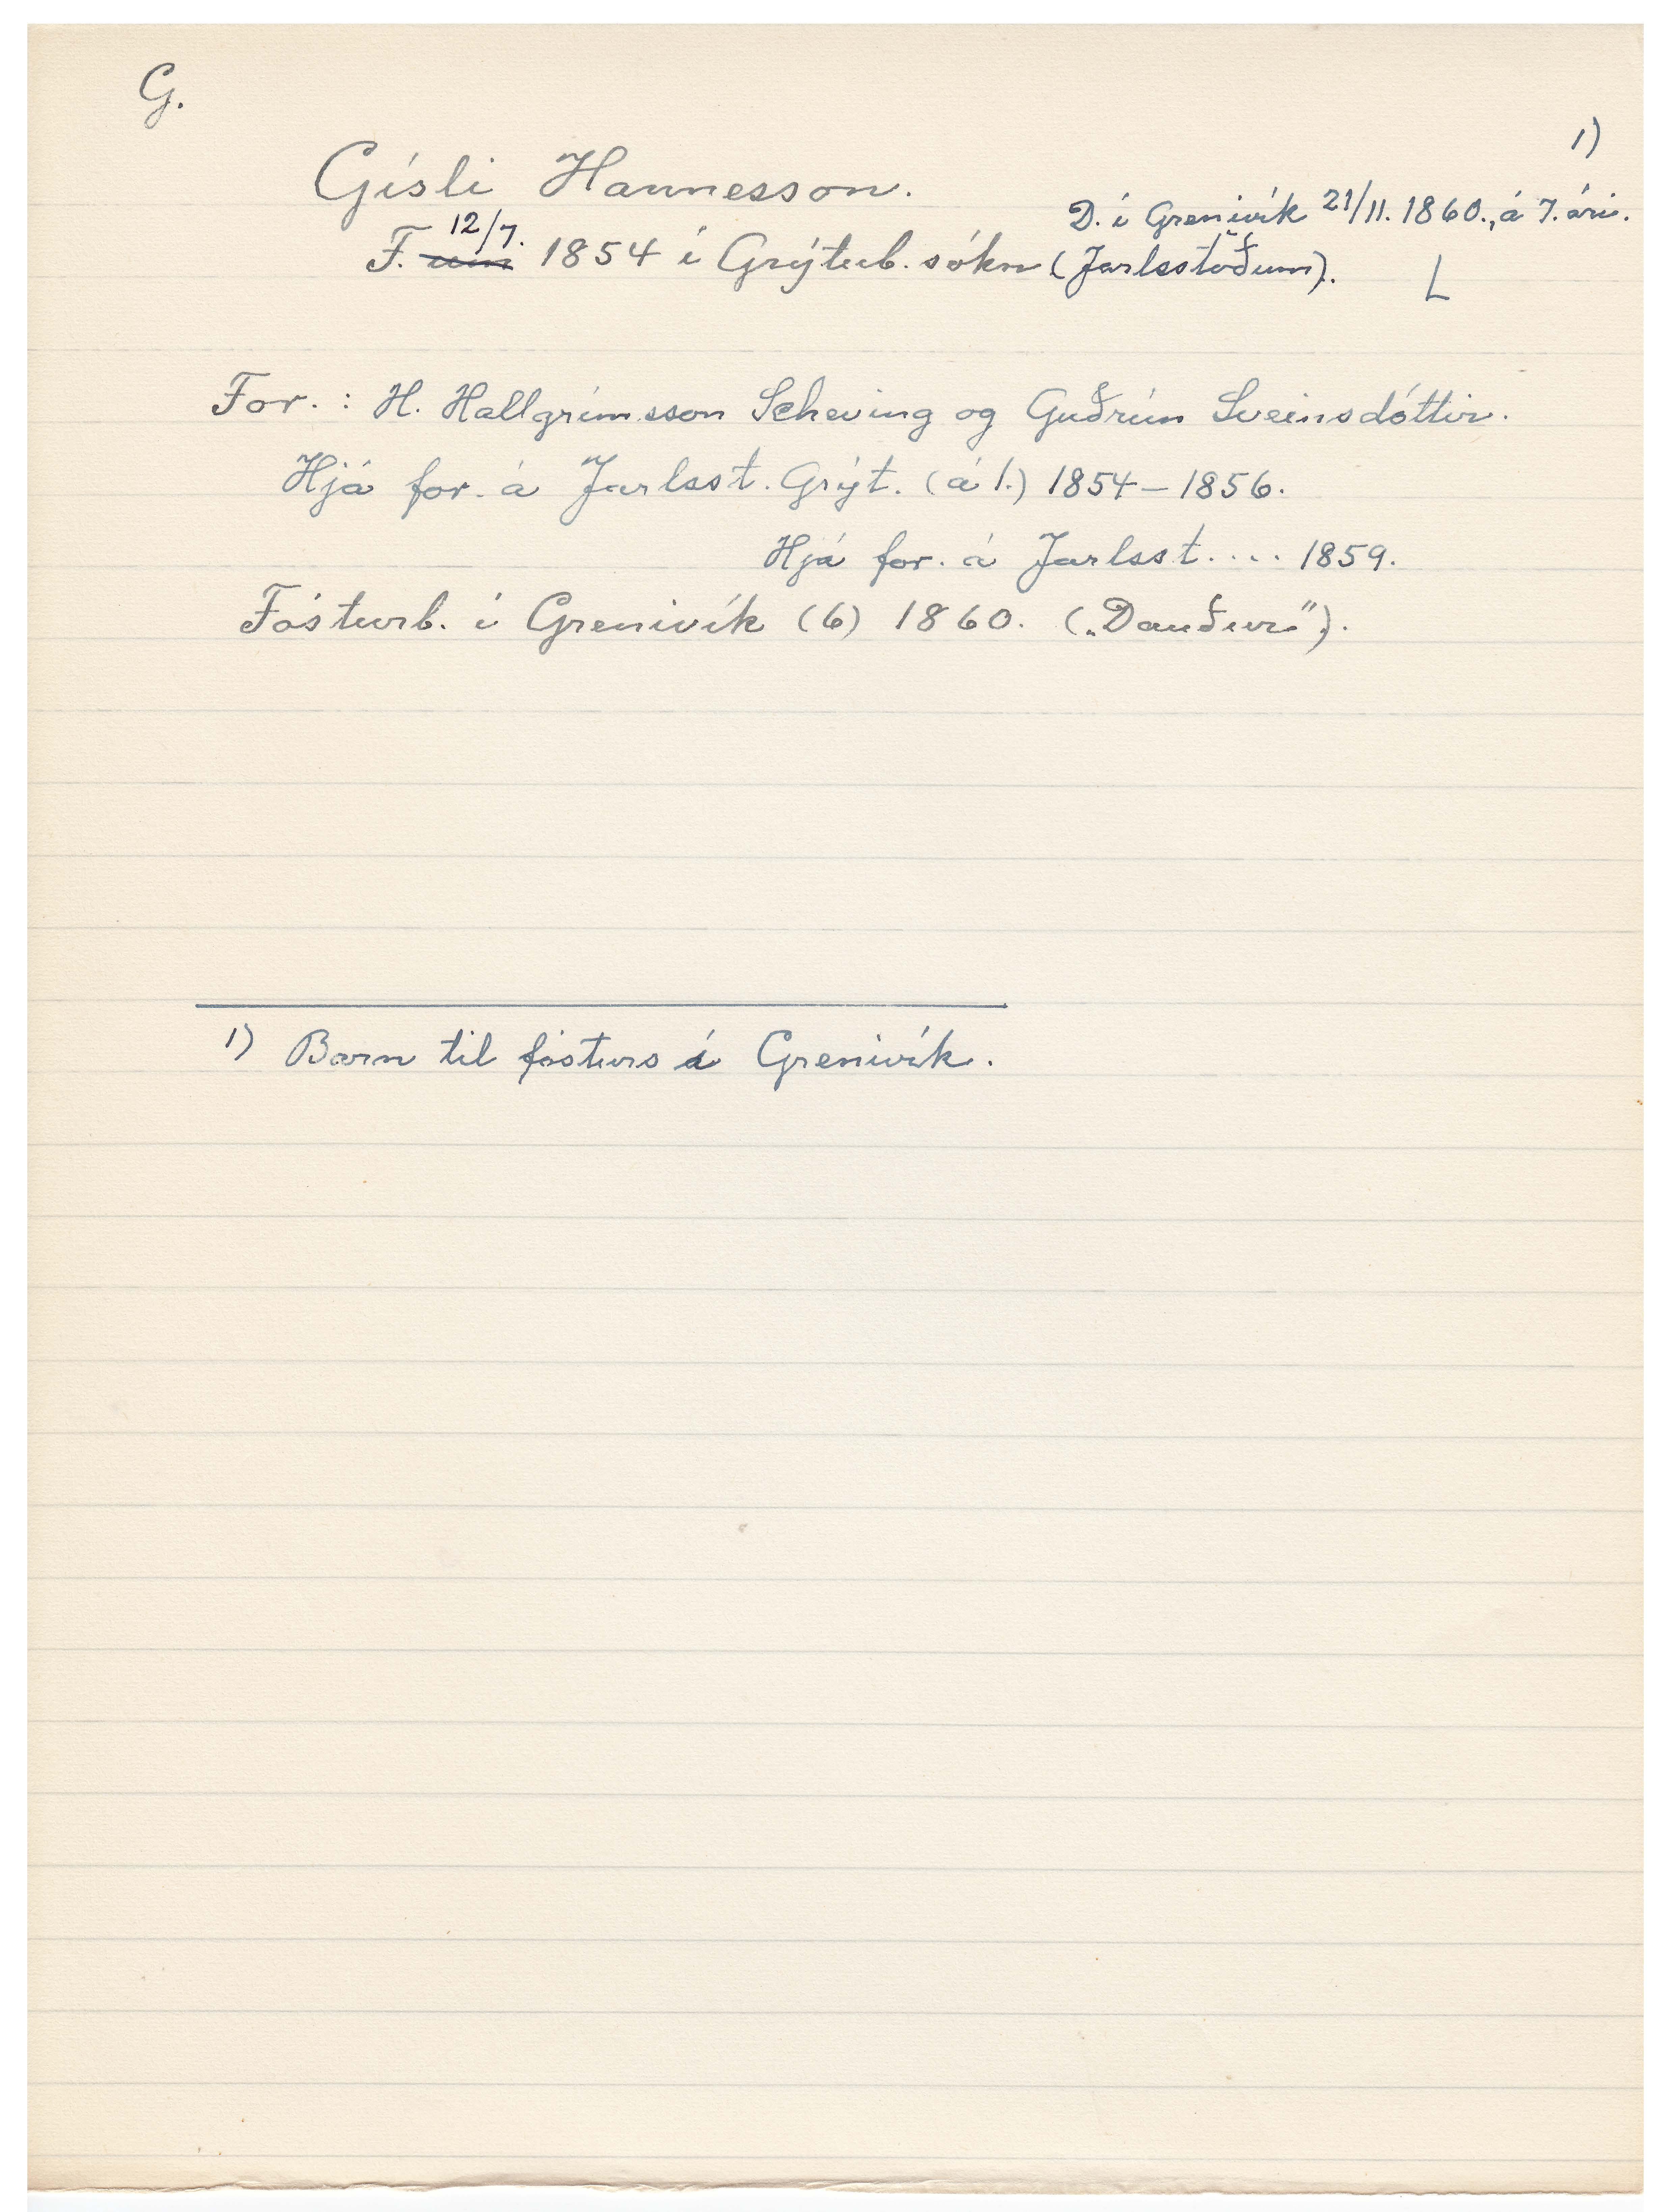 G.
1)
Gísli Hannesson.
D. í Grenivík 21/11. 1860., á 7. ári.
12/7.
F. um 1854 í Grýtub. sókn (Jarlsstöðum).
L
For. : H. Hallgrímsson Scheving og Guðrún Sveinsdóttir.
Hjá for. á Jarlsst. Grýt. (á 1.) 1854 – 1856.
Hjá for. á Jarlsst. . . . 1859.
Fósturb. í Grenivík (6) 1860. („Dauður").
1) Barn til fósturs á Grenivík.